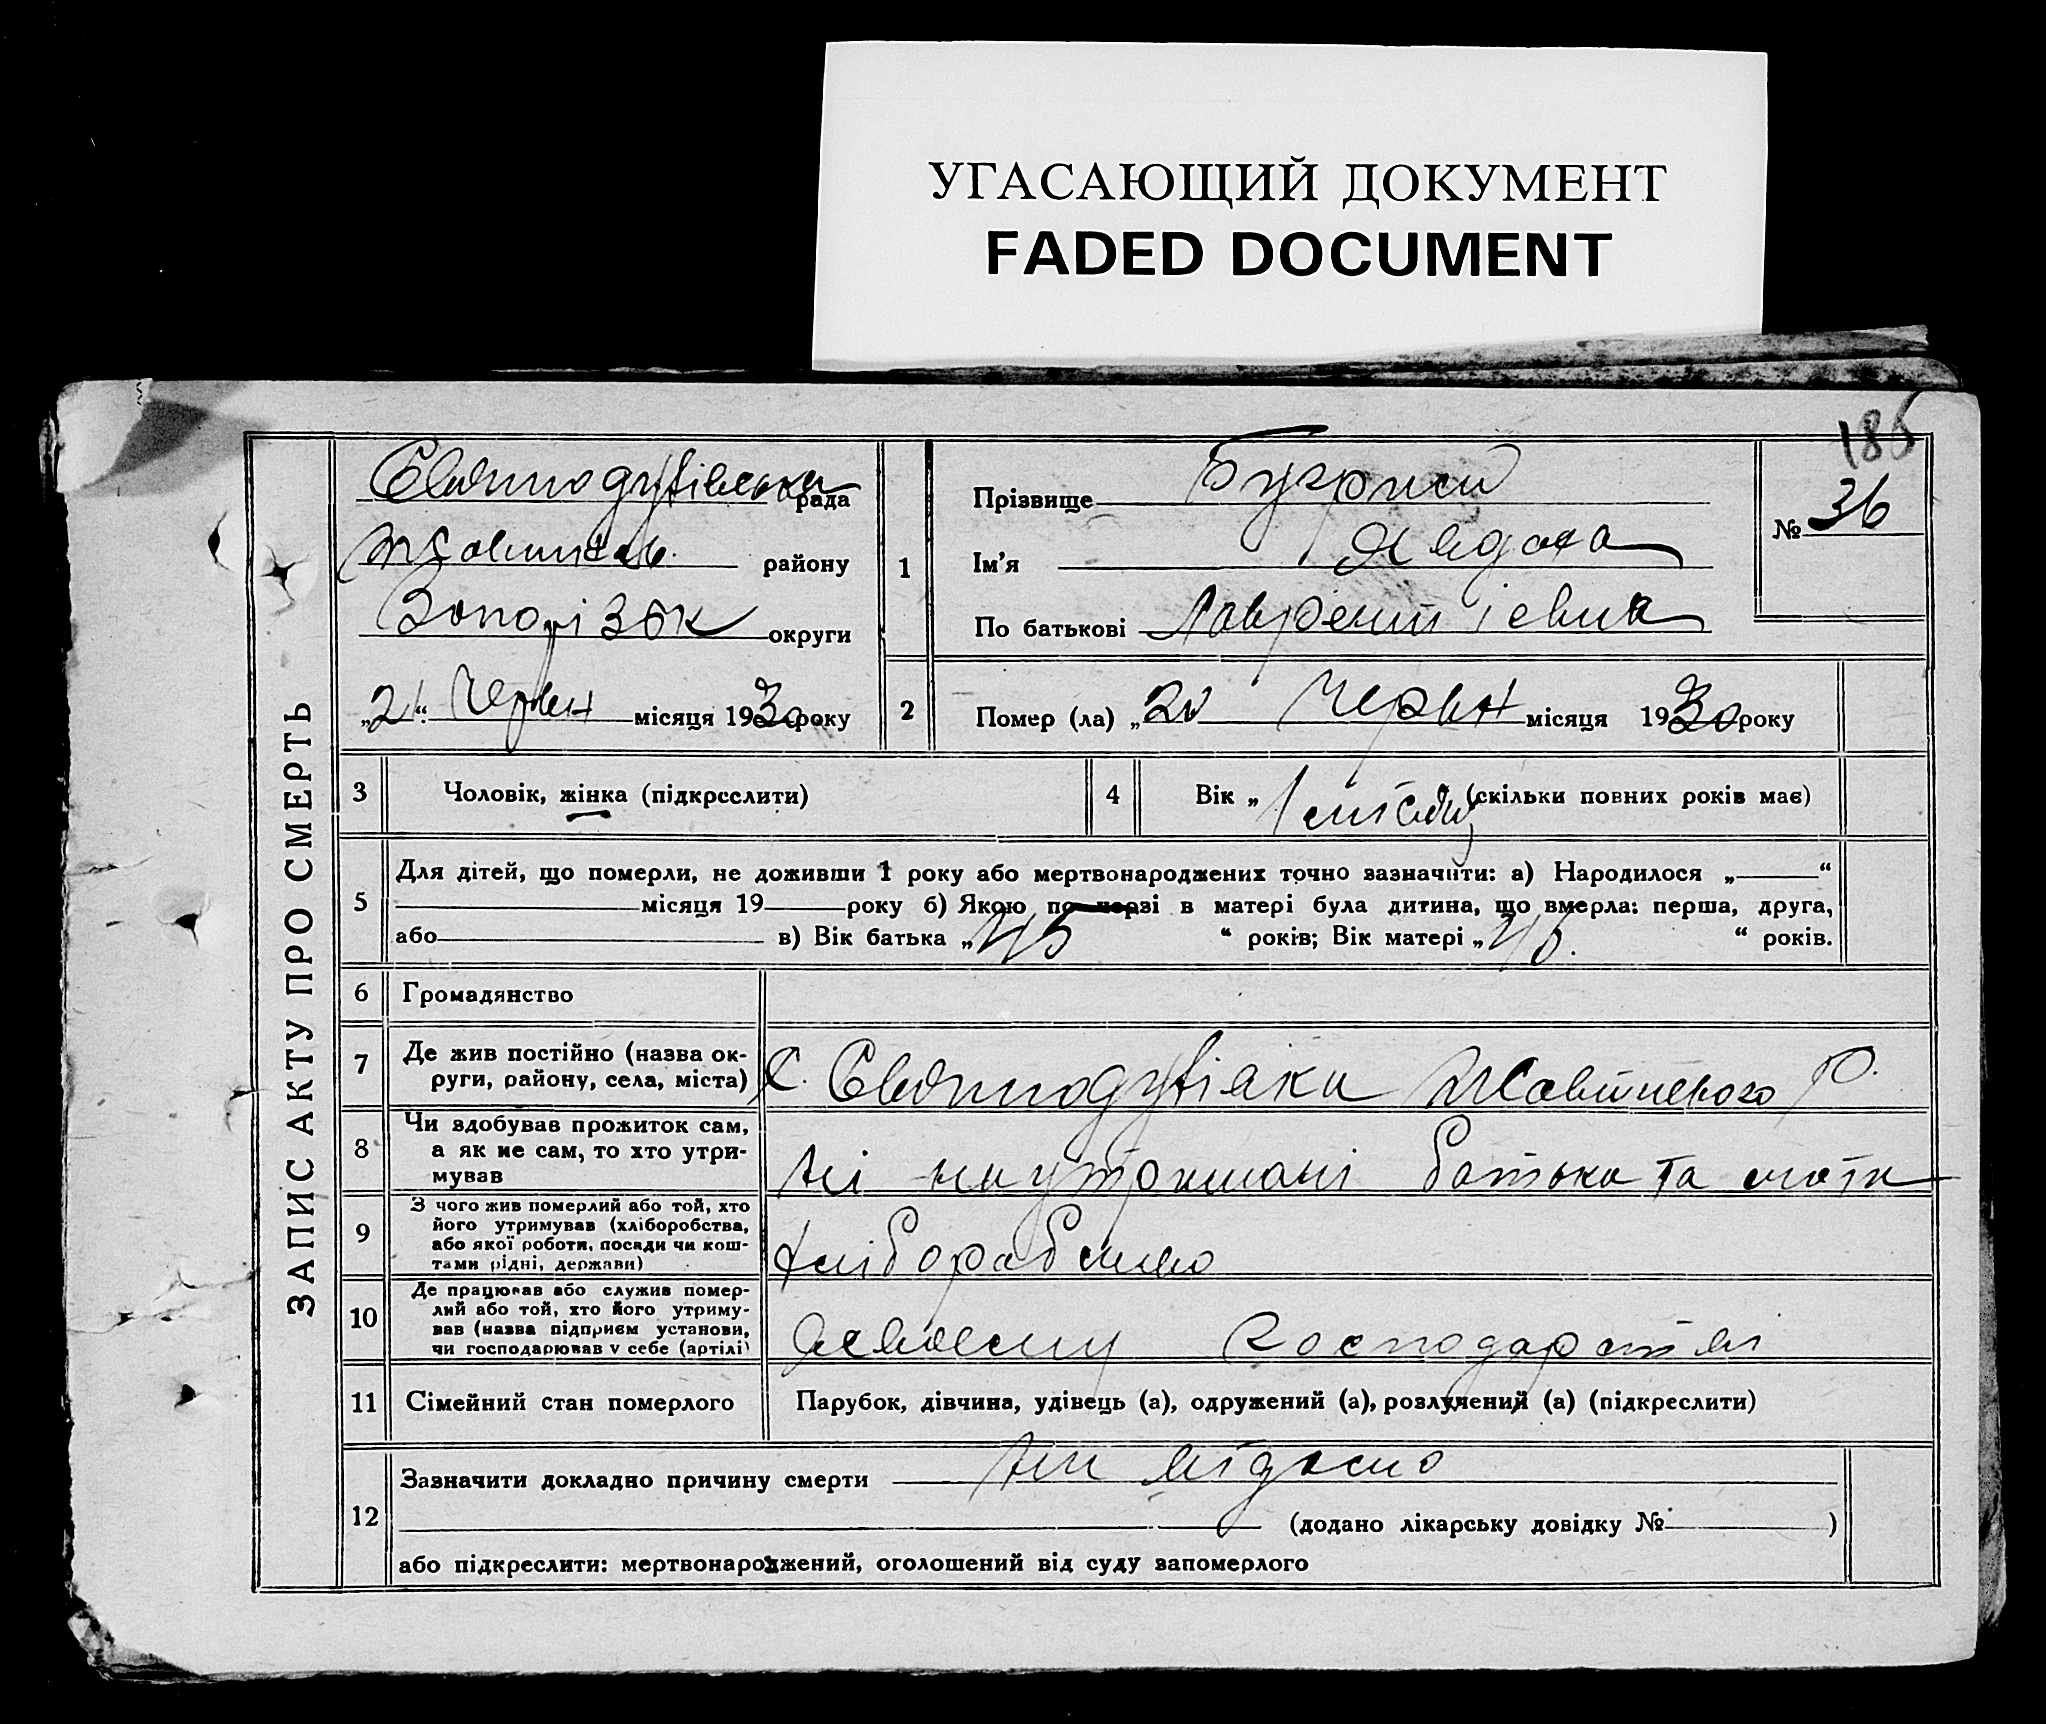 УГАСАЮЩИЙ ДОКУМЕНТ
FADED DOCUMENT
186
ЗАПИС АКТУ ПРО СМЕРТЬ
рада
району
округи
„21“ Червн місяця 1930 року
1
Прізвище
Ім'я Явдоха
По батькові
№ 36
2
Помер (ла) „20 Червн місяця 1930 року
3
Чоловік, жінка (підкреслити)
4
Вік „1 (скільки повних років має)
5
Для дітей, що померли, не доживши 1 року або мертвонароджених точно зазначити: а) Народилося „ “
місяця 19 року б) Якою по черзі в матері була дитина, що вмерла: перша, друга,
або в) Вік батька „45 “ років; Вік матері „ “ років.
6
Громадянство
7
Де жив постійно (назва ок-
руги, району, села, міста)
с. р.
8
Чи здобував прожиток сам,
а як не сам, то хто утри-
мував
Ні на утриманні батька та мати
9
З чого жив померлий або той, хто
його утримував (хліборобства,
або якої роботи, посади чи кош-
тами рідні, держави)
10
Де працював або служив помер-
лий або той, хто його утриму-
вав (назва підприєм установи,
чи господарював у себе (артілі)
11
Сімейний стан померлого
Парубок, дівчина, удівець (а), одружений (а), розлучений (а) (підкреслити)
12
Зазначити докладно причину смерти Не відомо
(додано лікарську довідку № )
або підкреслити: мертвонароджений, оголошений від суду запомерлого